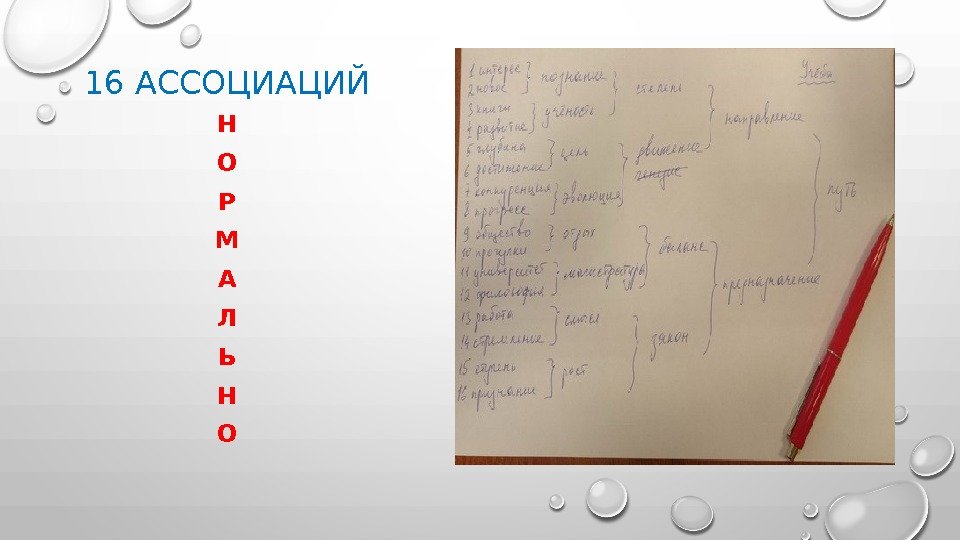 16 АССОЦИАЦИЙ
Н
О
Р
М
А
Л
Ь
Н
О
Учёба
1 интерес
2 новое
познание
степень
3 книги
4 развитие
учёность
направление
5 глубина
6 достижение
цель
движение
7 конкуренция
8 прогресс
эволюция
путь
9 общество
10 прогулки
отдых
баланс
11 университет
12 философия
магистратура
предназначение
13 работа
14 стремление
смысл
закон
15
16 призвание
рост